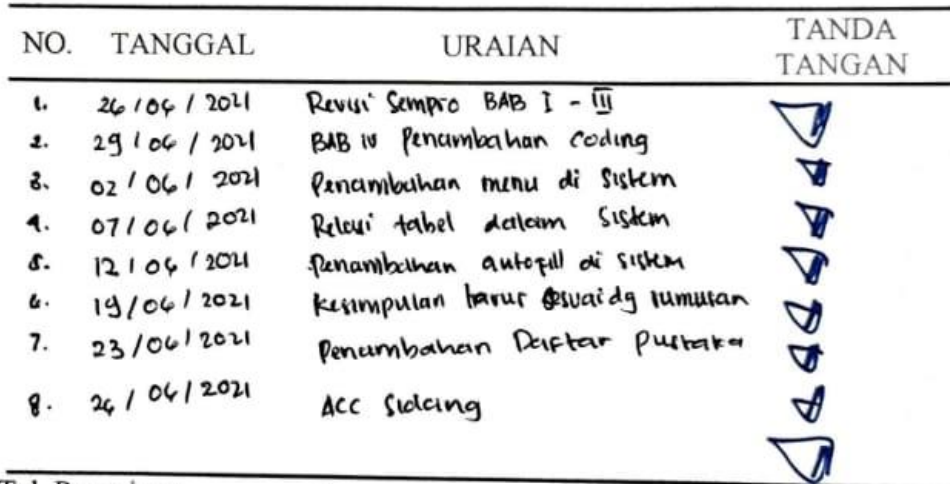 NO. TANGGAL URAIAN TANDA TANGAN
1. 26/04/2021 Revisi Sempro BAB I - III
2. 29/04/2021 BAB IV Penambahan Coding
3. 02/06/2021 Penambahan menu di Sistem
4. 07/06/2021 Relasi tabel dalam Sistem
5. 12/06/2021 Penambahan autofill di sistem
6. 19/06/2021 Kesimpulan harus sesuai dg rumusan
7. 23/06/2021 Penambahan Daftar Pustaka
8. 24/06/2021 ACC Sidang